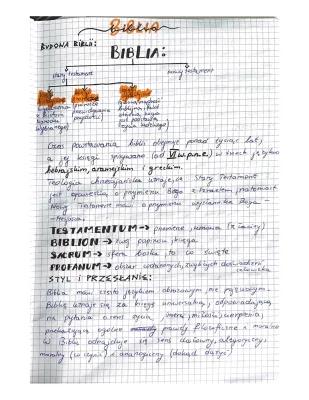 Biblia
BUDOWA BIBLII:
BIBLIA:
stary testament
nowy testament
Czas powstawania biblii obejmuje ponad tysiąc lat,
a jej księgi spisywano (od VI w.p.n.e.) w trzech językach
hebrajskim, aramejskim i greckim.
Teologia chrześcijańska uznaje, że Stary Testament
jest opowieścią o przymierzu Boga z Izraelem, natomiast
Nowy Testament mówi o przymierzu wysłannika Boga
TESTAMENTUM → przymierze, umowa (z łaciny)
BIBLION → zwój papirusu, księga
SACRUM → sfera boska to co święte
PROFANUM → obszar codziennych, zwykłych doświadczeń
człowieka
STYL I PRZESŁANIE:
Biblia mówi często językiem obrazowym, nie pojęciowym.
Biblię uznaje się za księgę uniwersalną, odpowiadającą
na pytania o sens życia, śmierci, miłości, cierpienia,
przekazującą ogólne prawdy filozoficzne i moralne
w Biblii odnajduje się sens dosłowny, alegoryczny,
moralny (co czynić) i anagogiczny (dokąd dążyć)